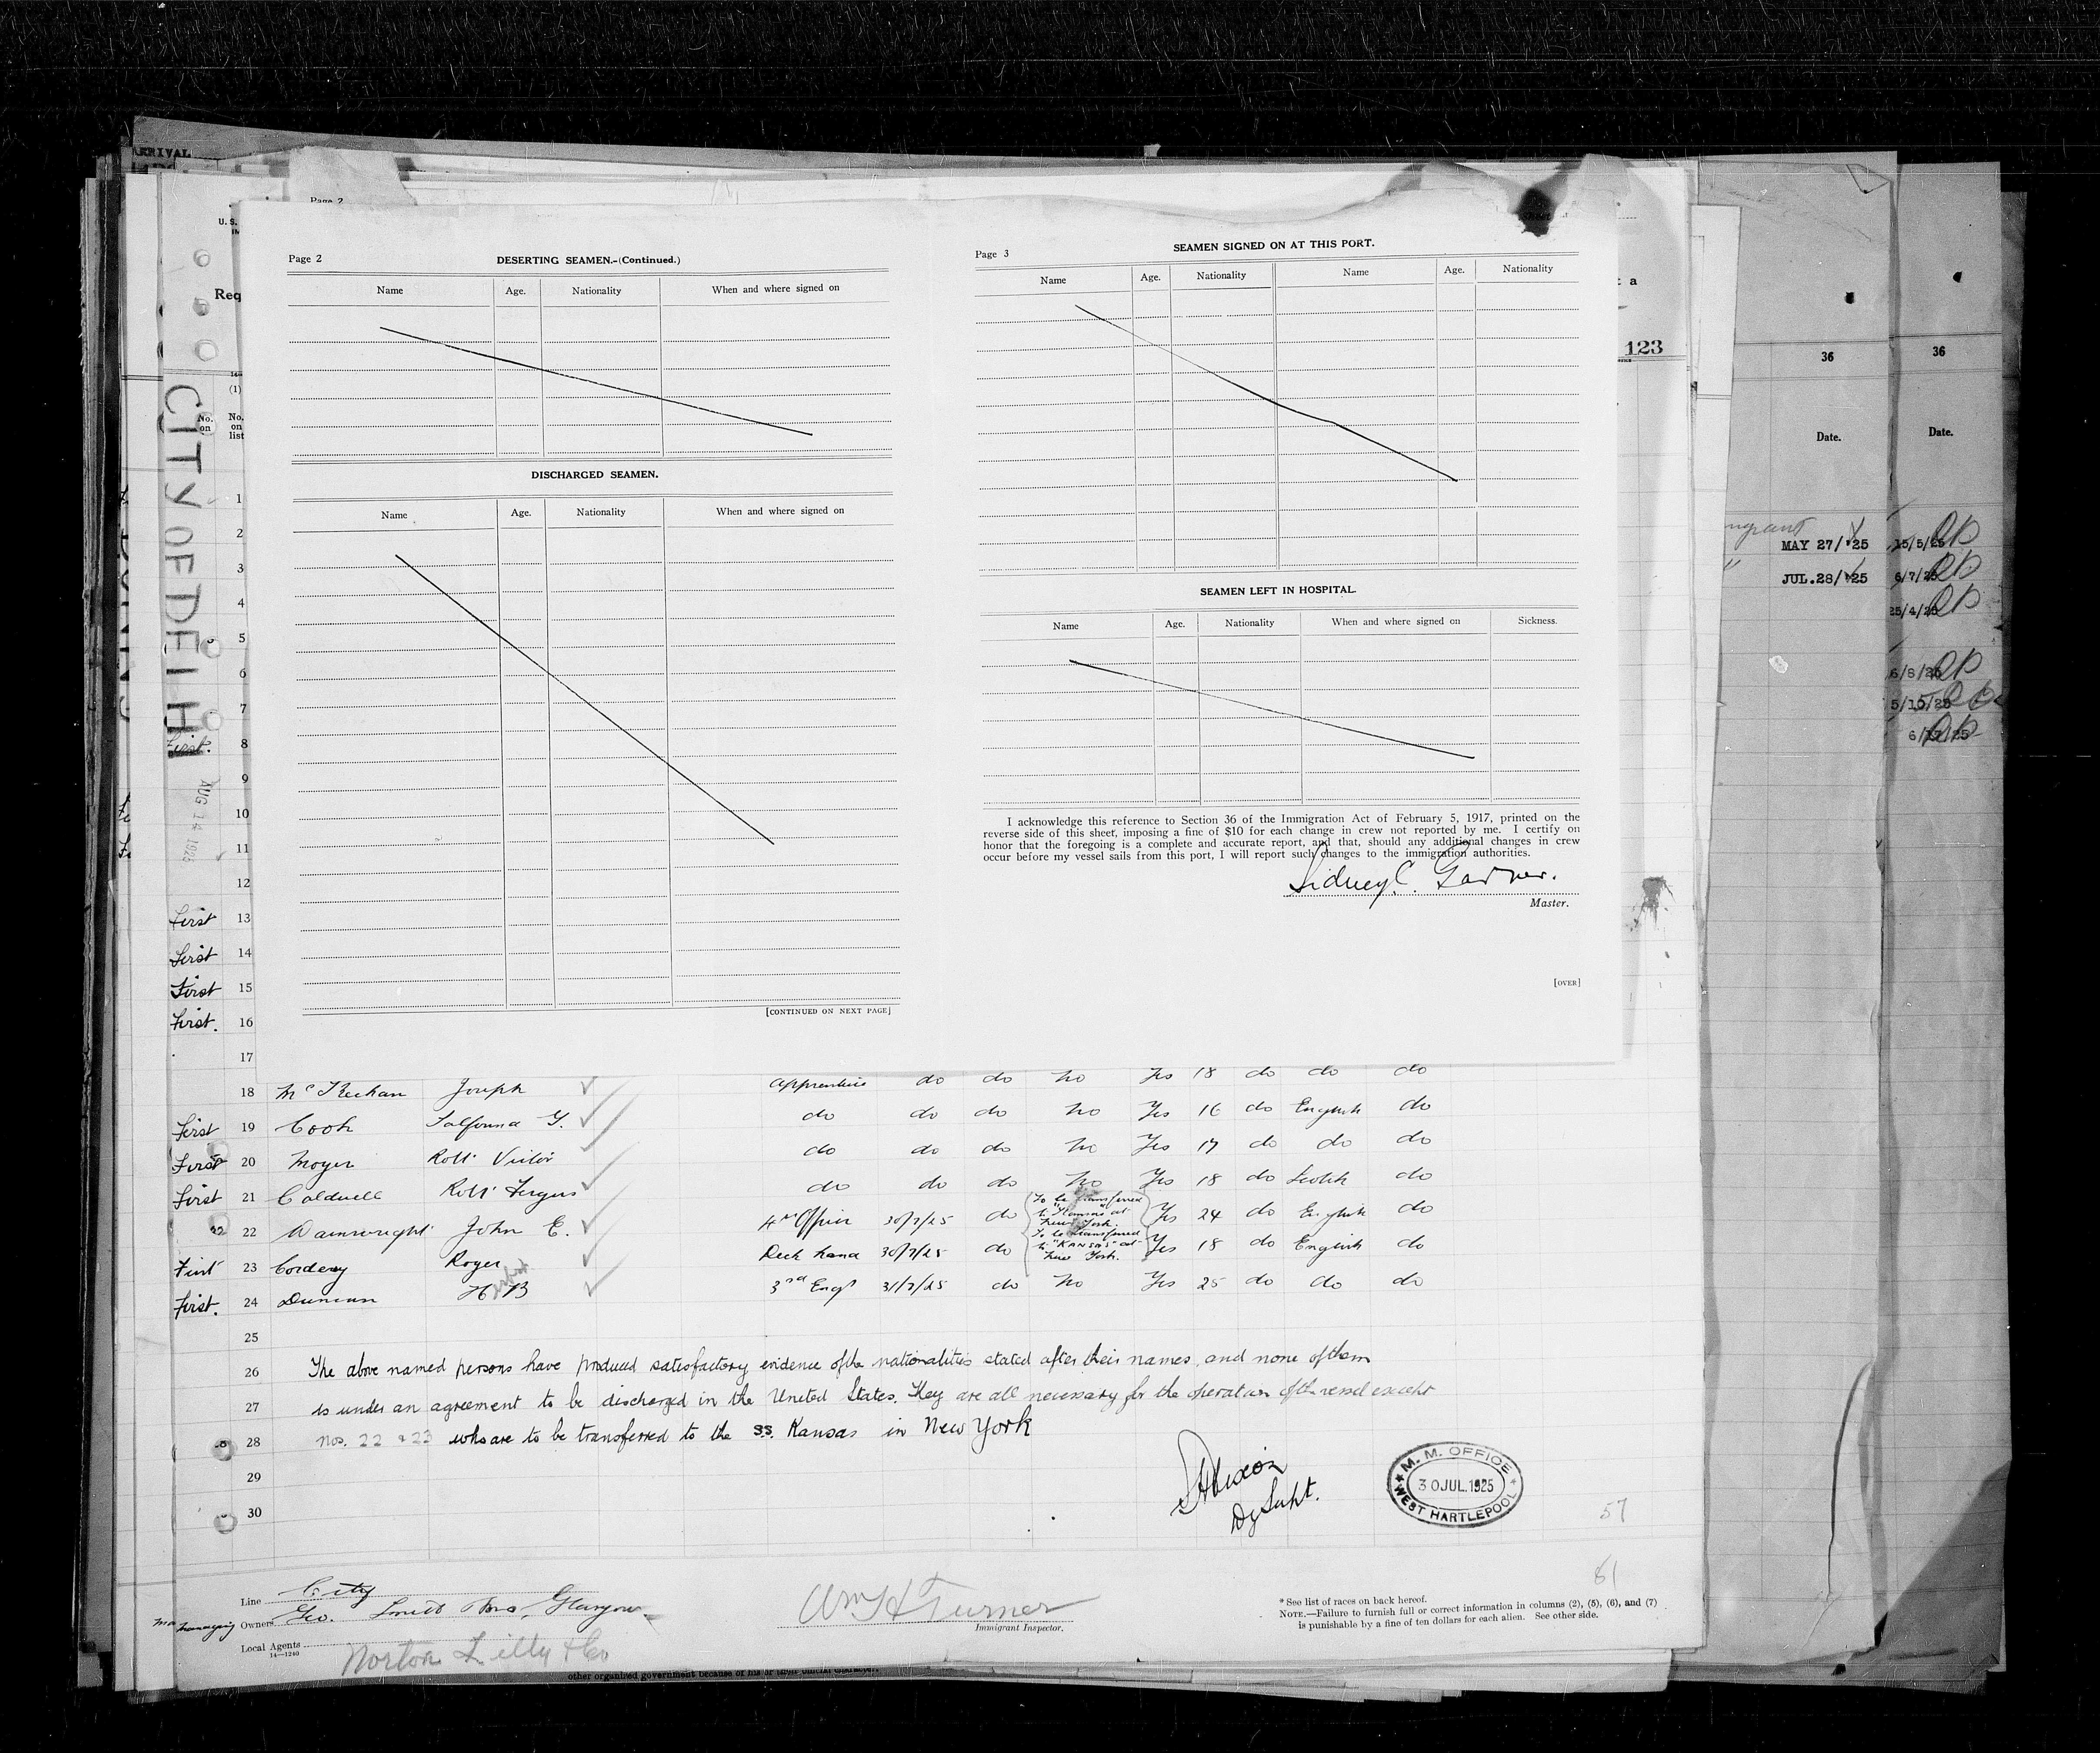 ARRIVAL
Page 2
U. S.
Req
CITY OF DELHI
AUG 14 1925
(1)
No. on
No. on list
Page 2 DESERTING SEAMEN.-(Continued.)
Name Age. Nationality When and where signed on
DISCHARGED SEAMEN.
Name Age. Nationality When and where signed on
[CONTINUED ON NEXT PAGE]
Page 3 SEAMEN SIGNED ON AT THIS PORT.
Name Age. Nationality Name Age. Nationality
SEAMEN LEFT IN HOSPITAL.
Name Age. Nationality When and where signed on Sickness.
I acknowledge this reference to Section 36 of the Immigration Act of February 5, 1917, printed on the
reverse side of this sheet, imposing a fine of $10 for each change in crew not reported by me. I certify on
honor that the foregoing is a complete and accurate report, and that, should any additional changes in crew
occur before my vessel sails from this port, I will report such changes to the immigration authorities.
Sidney C. Garner.
Master.
[OVER]
a
123
36
Date.
MAY 27/'25
JUL.28/'25
36
Date.
15/5/25
6/7/25
25/4/25
6/8/25
5/15/25
1
2
3
4
5
6
7
First. 8
9
10
11
12
First 13
First 14
First 15
First. 16
17
18 McKeehan Joseph Apprentice do do No Yes 18 do do do
First 19 Cook G. do do do No Yes 16 do English do
First 20 Moyer Robt Victor do do do No Yes 17 do do do
First 21 Caldwell Robt Fergus do do do No Yes 18 do Scotch do
22 Wainwright John E. 4th Officer 30/7/25 do To be transferred to "Kansas" at New York. Yes 24 do English do
First 23 Cordery Roger Deck hand 30/7/25 do To be transferred to "KANSAS" at New York. Yes 18 do English do
First. 24 Duncan H B 3rd Engr 31/7/25 do No Yes 25 do do do
25
26 The above named persons have produced satisfactory evidence of the nationalities stated after their names, and none of them
27 is under an agreement to be discharged in the United States. They are all necessary for the operation of the vessel except
28 Nos. 22 & 23 who are to be transferred to the SS. Kansas in New York
29
30
Dy Supt.
M. M. OFFICE
30 JUL. 1925
WEST HARTLEPOOL
57
61
Line City
Managing Owners Geo. Smith & Sons, Glasgow
Local Agents Norton Lilly & Co
14—1240
Wm H Turner
Immigrant Inspector.
* See list of races on back hereof.
NOTE.—Failure to furnish full or correct information in columns (2), (5), (6), and (7)
is punishable by a fine of ten dollars for each alien. See other side.
other organized government because of his or their official character.